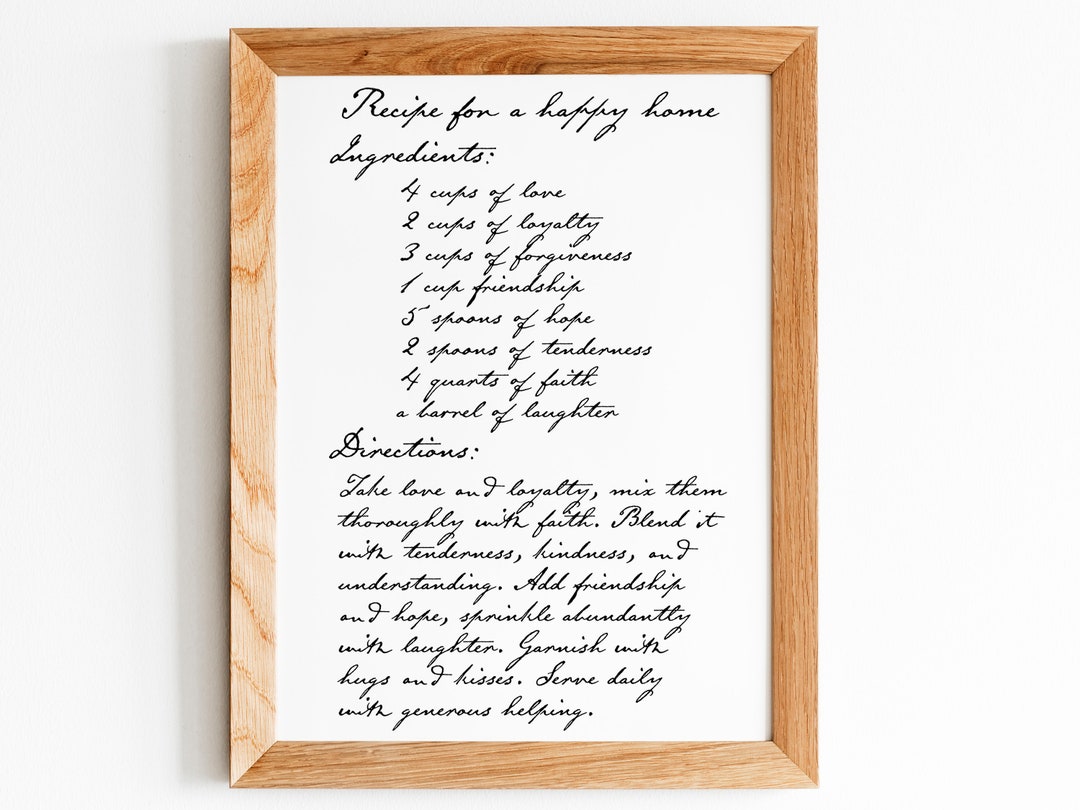 Recipe for a happy home
Ingredients:
4 cups of love
2 cups of loyalty
3 cups of forgiveness
1 cup friendship
5 spoons of hope
2 spoons of tenderness
4 quarts of faith
a barrel of laughter
Directions:
Take love and loyalty, mix them
thoroughly with faith. Blend it
with tenderness, kindness, and
understanding. Add friendship
and hope, sprinkle abundantly
with laughter. Garnish with
hugs and kisses. Serve daily
with generous helping.